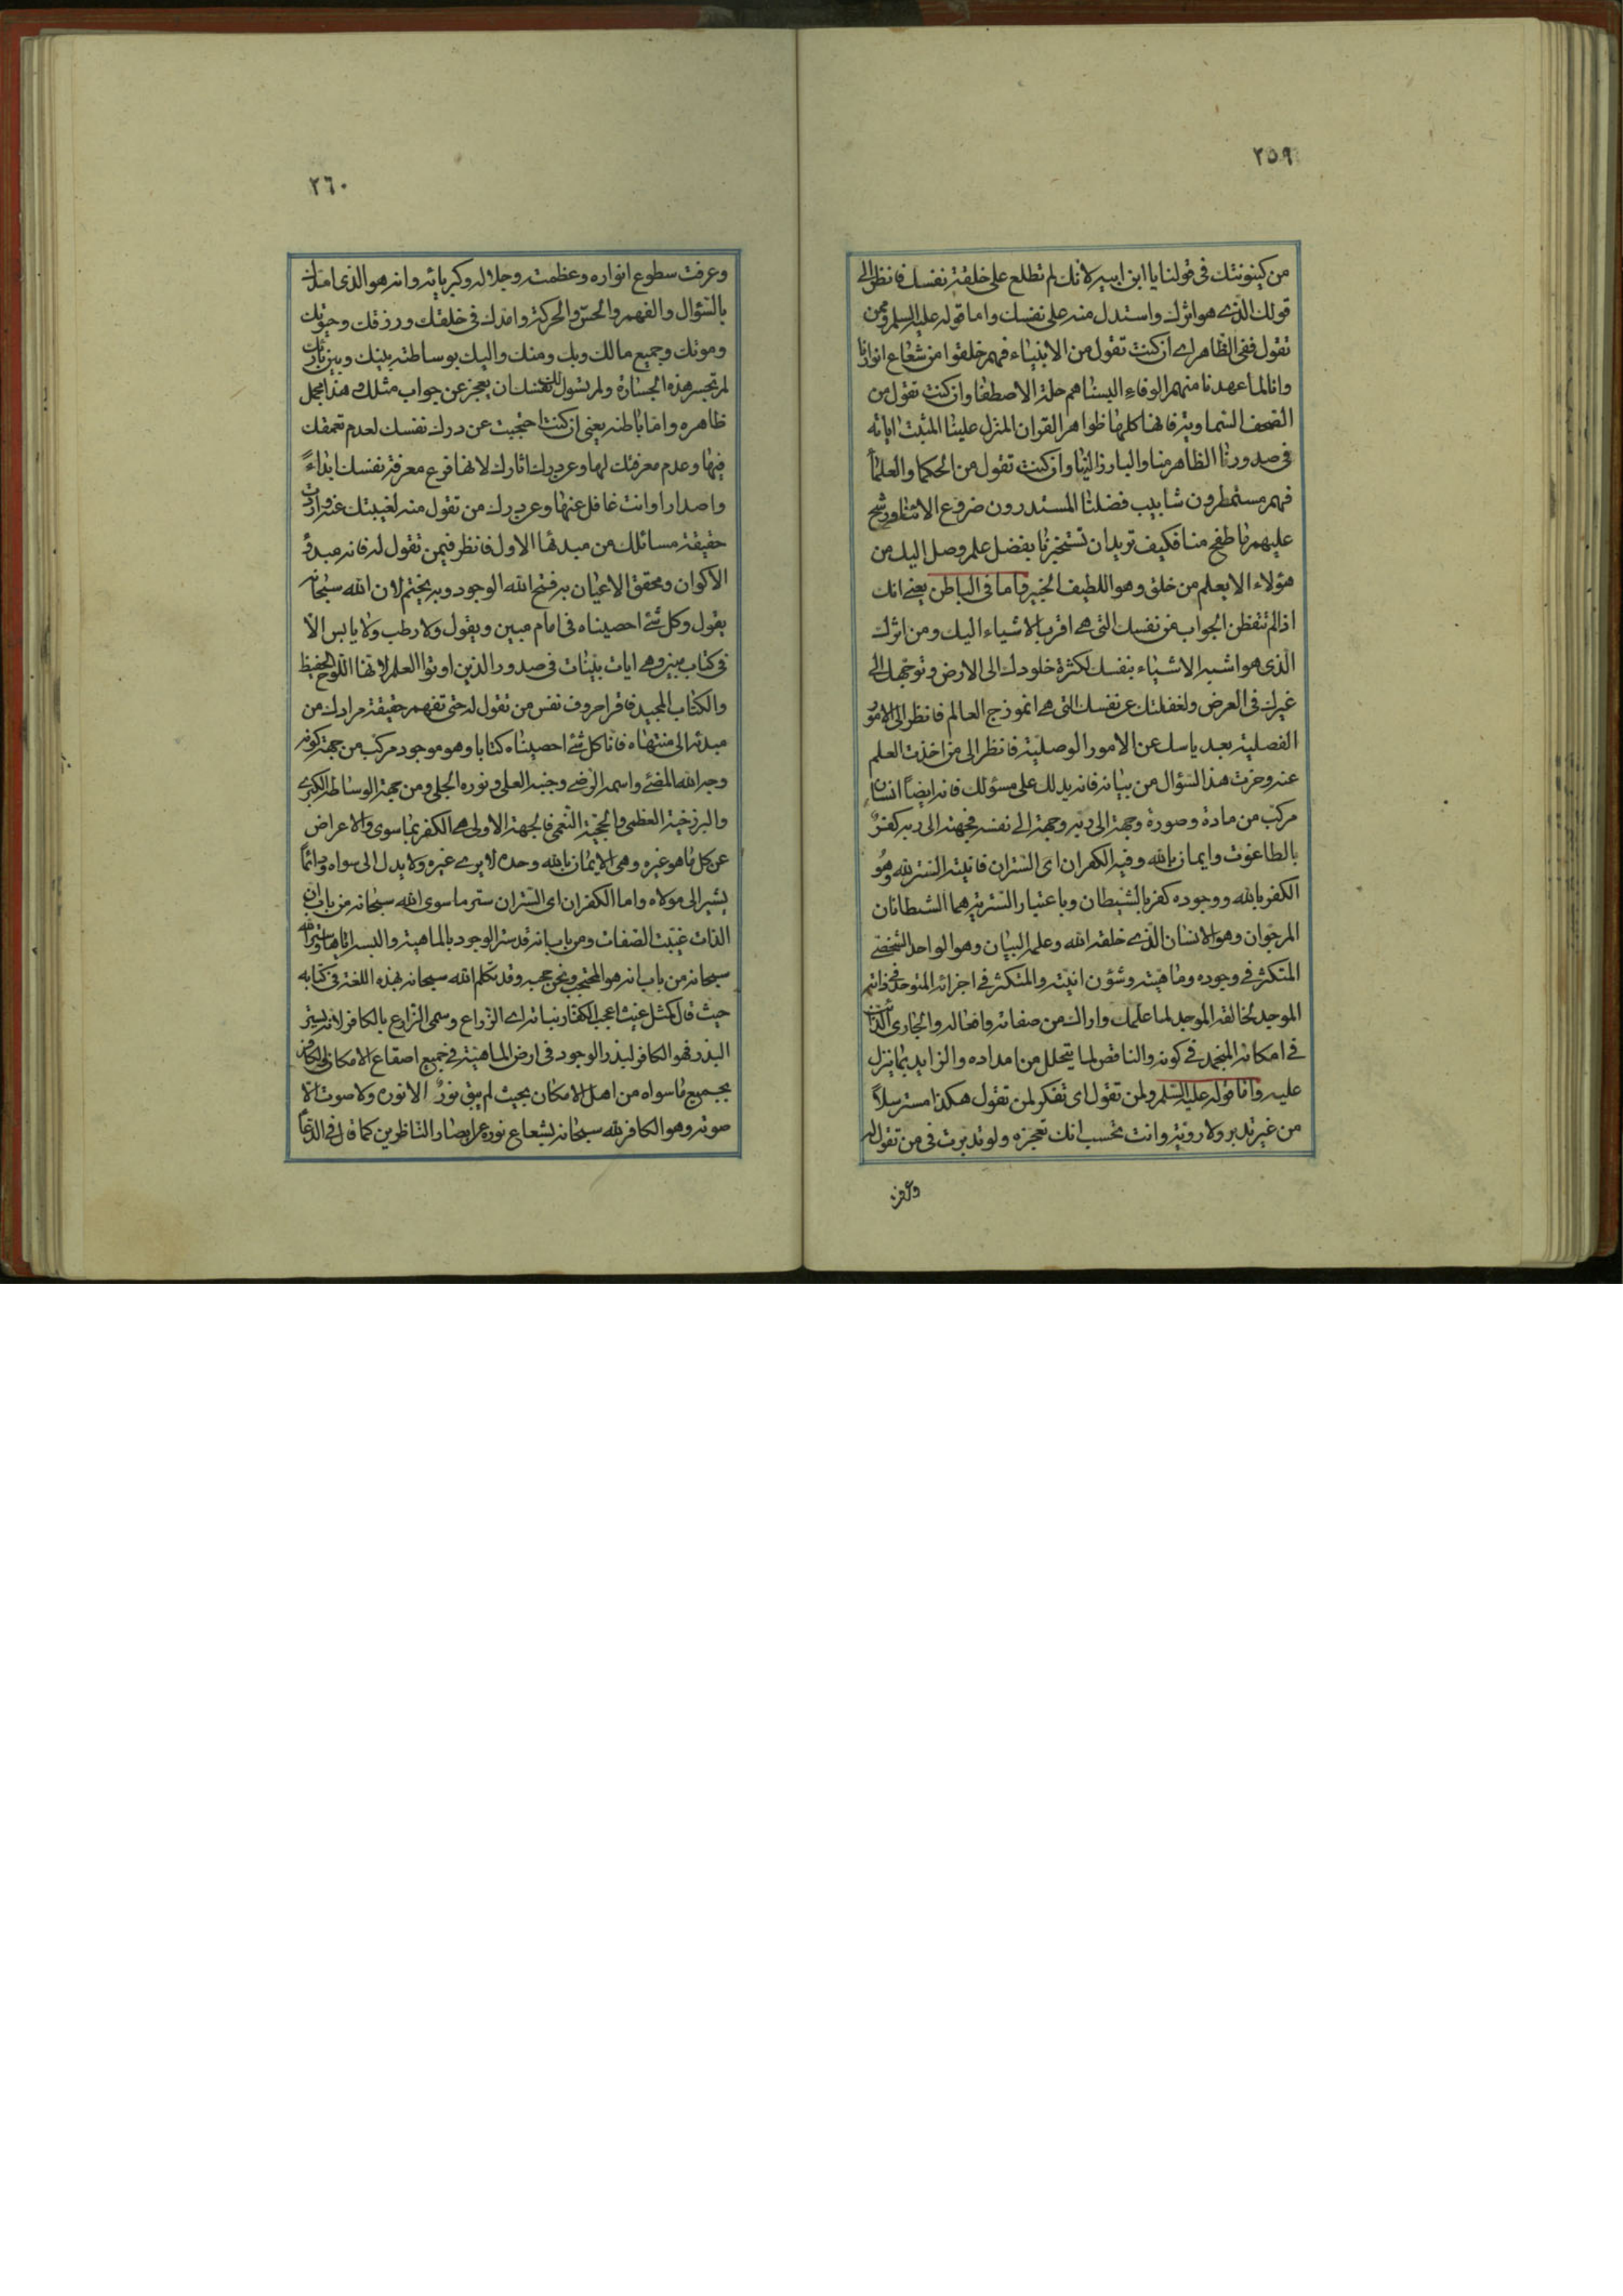 ٢٥٩
من كينونتك فى قولنا يا ابن ابيه لانك لم تطلع على خلقة نفسك فانظر الى
قولك الذى هو اثرك واستدل منه على نفسك واما قوله عليه السلم وممن
تقول ففى الظاهر اى ان كنت تقول من الانبياء فهم خلقوا من شعاع انوارنا
وانا لما عهدنا منهم الوفاء البسناهم حلة الاصطفا وان كنت تقول من
الصحف السماوية فانها كلها ظواهر القران المنزل علينا المثبت اياته
فى صدورنا الظاهر منا والبارز الينا وان كنت تقول من الحكما والعلما
فهم مستمطرون شابيب فضلنا المستدرون ضروع الائنا ورشح
عليهم ما طفح منا فكيف تريد ان تستخبرنا بفضل علم وصل اليك من
هؤلاء الا يعلم من خلق وهو اللطيف الخبير واما فى الباطن يعنى انك
اذا لم تتفطن الجواب من نفسك التى هى اقرب الاشياء اليك ومن اثرك
الذى هو اشبه الاشياء بنفسك لكثرة خلودك الى الارض وتوجهك الى
غيرك فى العرض ولغفلتك عن نفسك التى هى انموذج العالم فانظر الى الامور
الفصلية بعد ياسك عن الامور الوصلية فانظر الى من اخذت العلم
عنه وخزت هذا السؤال من بيانه فانه يدلك على مسؤلك فانه ايضاً انسان
مركب من مادة وصورة وجهة الى ربه وجهة الى نفسه فجهته الى ربه كفرٌ
بالطاغوت وايمان بالله وفيه الكفران اى الستران فانيته الستر لله وهو
الكفر بالله ووجوده كفر بالشيطان وباعتبار السترية هما الشيطانان
المرجوان وهو الانسان الذى خلقه الله وعلمه البيان وهو الواحد الشخصى
المتكثر فى وجوده وماهيته وشؤن انيته والمتكثر فى اجزائه المتوحد فى ذاته
الموجد لخالقه الموجد لما علمك واراك من صفاته وافعاله والجارى
فى امكانه المنجمد فى كونه والناقص لما يتحلل من امداده والزايد بما ينزل
عليه واما قوله عليه السلم ولمن تقول اى تفكر لمن تقول هكذا مسترسلاً
من غير تدبر ولا روية وانت تحسب انك تعجزه ولو تدبرت فى من تقول له
وعرفت
٢٦٠
وعرفت سطوع انواره وعظمته وجلاله وكبريائه وانه هو الذى امدك
بالسؤال والفهم والحس والحركة وامدك فى خلقك ورزقك وحيوتك
وموتك وجميع مالك وبك ومنك واليك بوساطته بينك وبين بارئك
لم تجسر هذه الجسارة ولم تسول لك نفسك ان يعجز عن جواب مثلك وهذا مجمل
ظاهره واما باطنه يعنى ان كنت احتجبت عن درك نفسك لعدم تعمقك
فيها وعدم معرفتك لها وعن درك اثارك لانها فرع معرفة نفسك ابداءً
واصدارا وانت غافل عنها وعن درك من تقول منه لغيبتك عنه واردت
حقيقة مسائلك من مبدئها الاول فانظر فيمن تقول له فانه مبدؤ
الاكوان ومحقق الاعيان به فتح الله الوجود وبه يختم لان الله سبحانه
يقول وكل شئ احصيناه فى امام مبين ويقول ولا رطب ولا يابس الا
فى كتاب مبين وهى ايات بينات فى صدور الذين اوتوا العلم لانها اللوح الحفيظ
والكتاب المجيد فاقرا حروف نفس من تقول له حتى تفهم حقيقة مرادك من
مبدئه الى منتهاه فانا كل شئ احصيناه كتابا وهو موجود مركب من جهة كونه
وجه الله المضئ واسمه الرضى وجنبه العلى ونوره الجلى ومن جهة الوساطة الكبرى
والبرزخية العظمى والحجية النعمى فالجهة الاولى هى الكفر بما سوى والاعراض
عن كل ما هو غيره وهى الايمان بالله وحده لا يرى غيره ولا يدل الى سواه ودائماً
يشير الى مولاه واما الكفران اى الستران ستر ما سوى الله سبحانه من باب ان
الذات غيبت الصفات ومن باب انه قد ستر الوجود بالماهية والبسه اياها وستر الله
سبحانه من باب انه هو المحتجب ونحن حجبه وقد تكلم الله سبحانه بهذه اللغة فى كتابه
حيث قال كمثل غيث اعجب الكفار نباته اى الزراع وسمى الزارع بالكافر لانه يستر
البذر فهو الكافر لبذر الوجود فى ارض الماهية فى جميع اصقاع الامكان الكافر
بجميع ما سواه من اهل الامكان بحيث لم يبق نورٌ الا نوره ولا صوت الا
صوته وهو الكافر لله سبحانه بشعاع نوره عن ابصار الناظرين كما قال فى الدعا